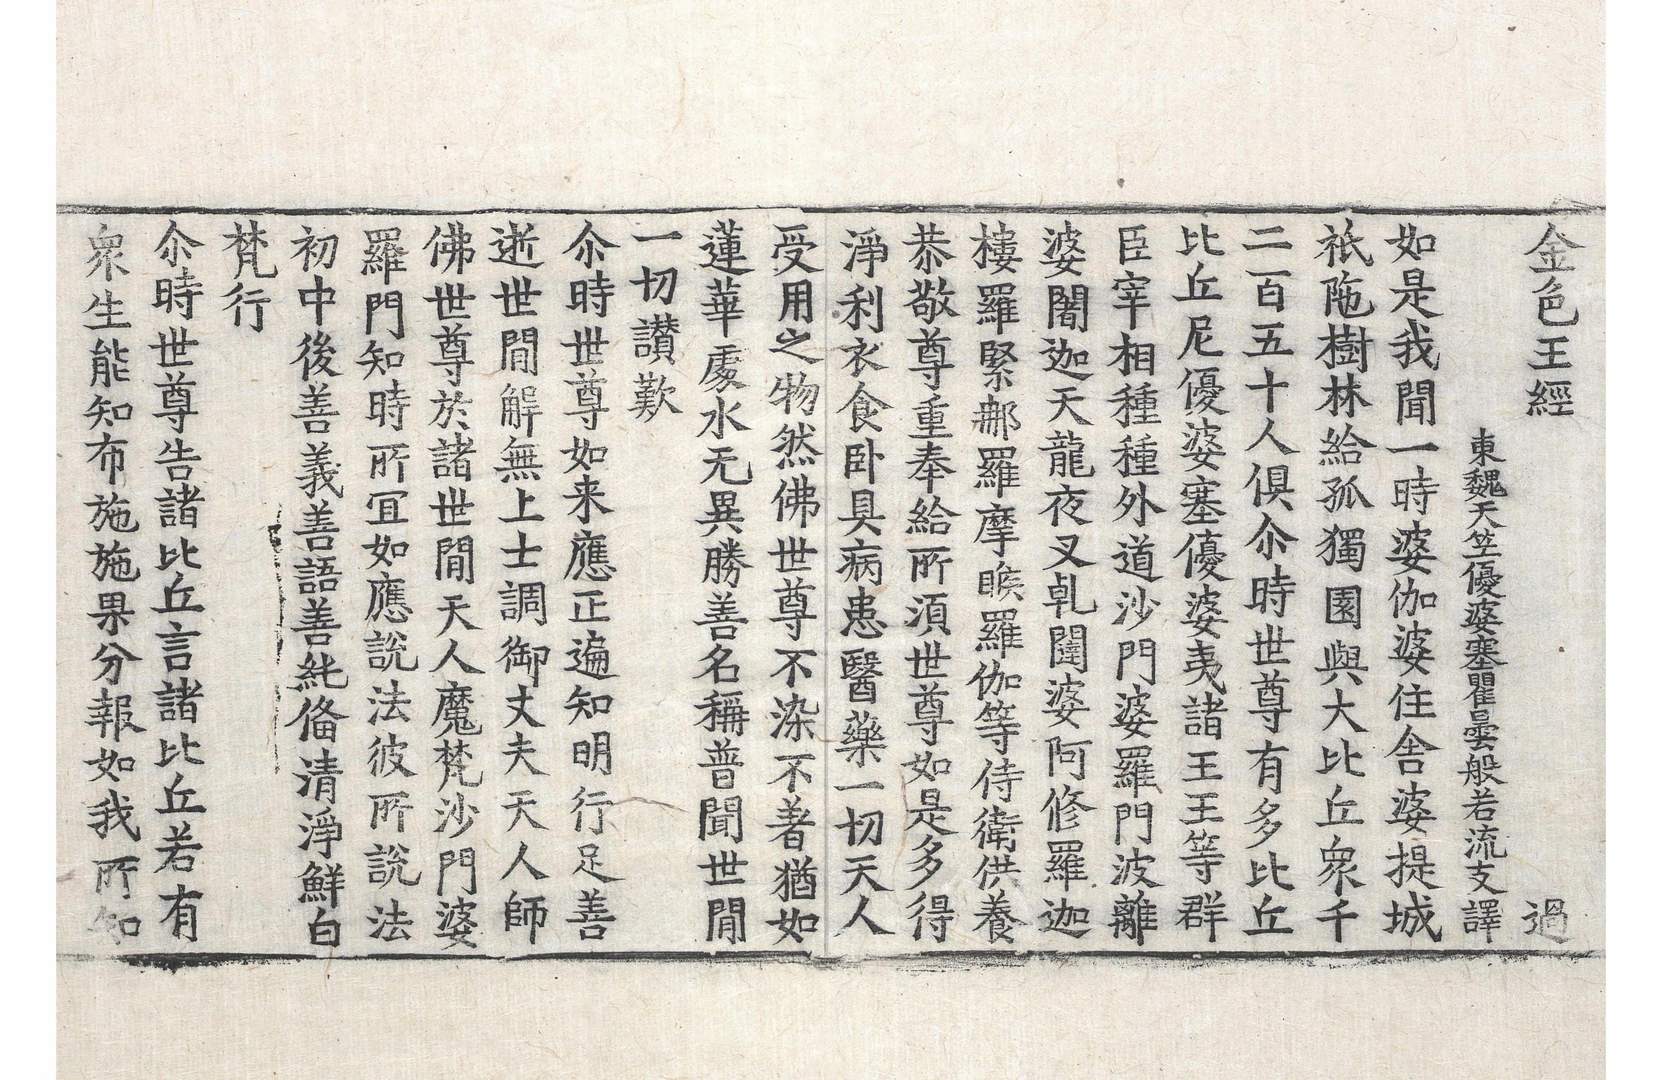 金色王經 過
東魏天竺優婆塞瞿曇般若流支譯
如是我聞一時婆伽婆住舍婆提城
祇陁樹林給孤獨園與大比丘衆千
二百五十人俱尒時世尊有多比丘
比丘尼優婆塞優婆夷諸王王等群
臣宰相種種外道沙門婆羅門波離
婆闍迦天龍夜叉乹闥婆阿修羅迦
樓羅緊那羅摩睺羅伽等侍衛供養
恭敬尊重奉給所湏世尊如是多得
淨利衣食卧具病患醫藥一切天人
受用之物然佛世尊不染不著猶如
蓮華處水无異勝善名稱普聞世閒
一切讃歎
尒時世尊如来應正遍知明行足善
逝世閒解無上士調御丈夫天人師
佛世尊於諸世閒天人魔梵沙門婆
羅門知時所冝如應說法彼所說法
初中後善義善語善純俻清淨鮮白
梵行
尒時世尊告諸比丘言諸比丘若有
衆生能知布施施果分報如我所知